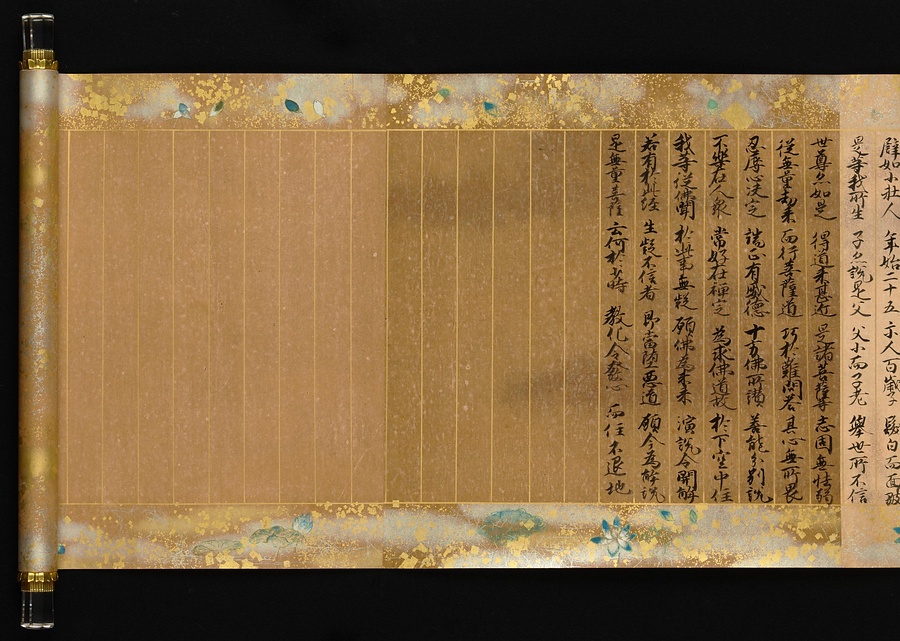 譬如少壯人 年始二十五 示人百歲子 髮白而面皺
是等我所生 子亦說是父 父少而子老 舉世所不信
世尊亦如是 得道來甚近 是諸菩薩等 志固無怯弱
從無量劫來 而行菩薩道 巧於難問答 其心無所畏
忍辱心決定 端正有威德 十方佛所讚 善能分別說
不樂在人衆 常好在禪定 為求佛道故 於下空中住
我等從佛聞 於此事無疑 願佛為未來 演說令開解
若有於此經 生疑不信者 即當墮惡道 願今為解說
是無量菩薩 云何於少時 教化令發心 而住不退地